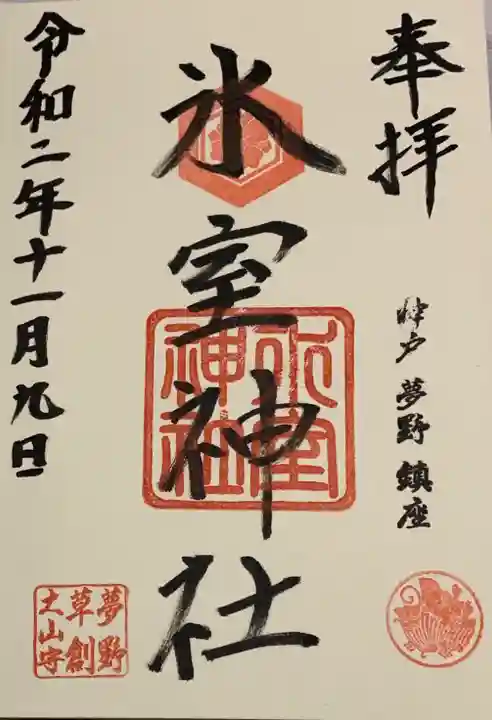 奉拝
神戸 夢野 鎮座
氷室神社
氷室神社
令和二年十一月九日
夢野
草創
土山守